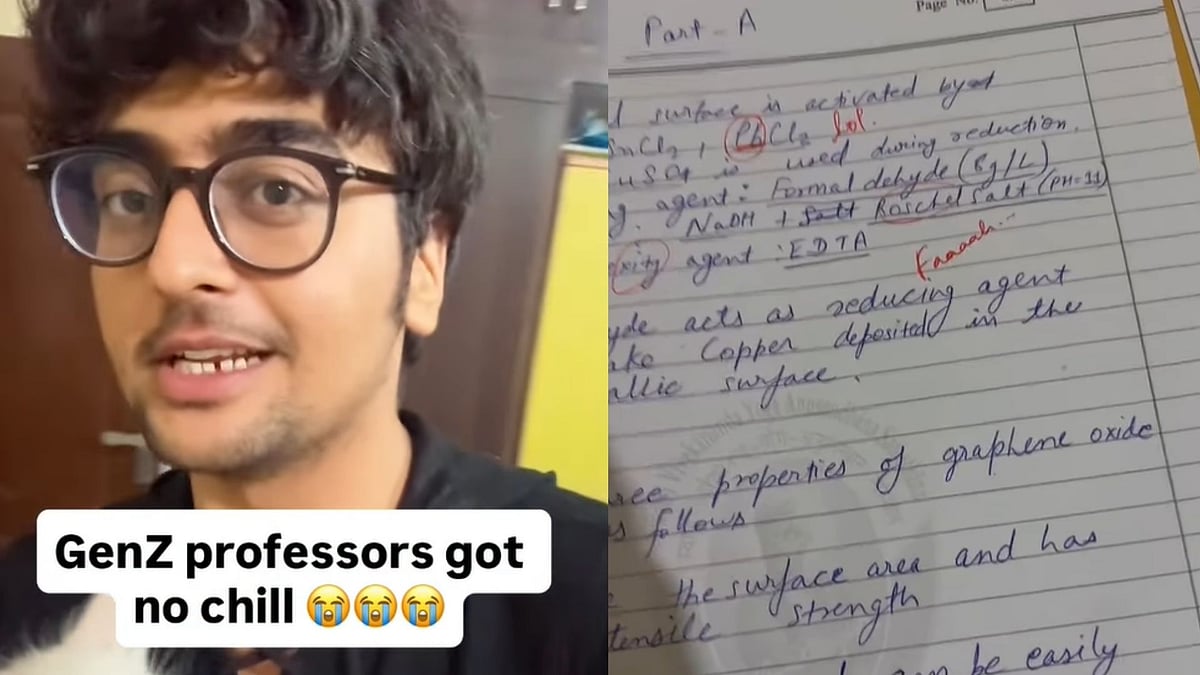 GenZ professors got
no chill 😭😭😭
Page No.
Part - A
surface is activated by
PbCl2 lol.
used during reduction.
agent : Formaldehyde (8g/L)
NaOH + Salt Roschel Salt (PH=11)
agent : EDTA
Faaaah...
acts as reducing agent
Copper deposited in the
surface.
properties of graphene oxide
follows
the surface area and has
tensile strength
be easily